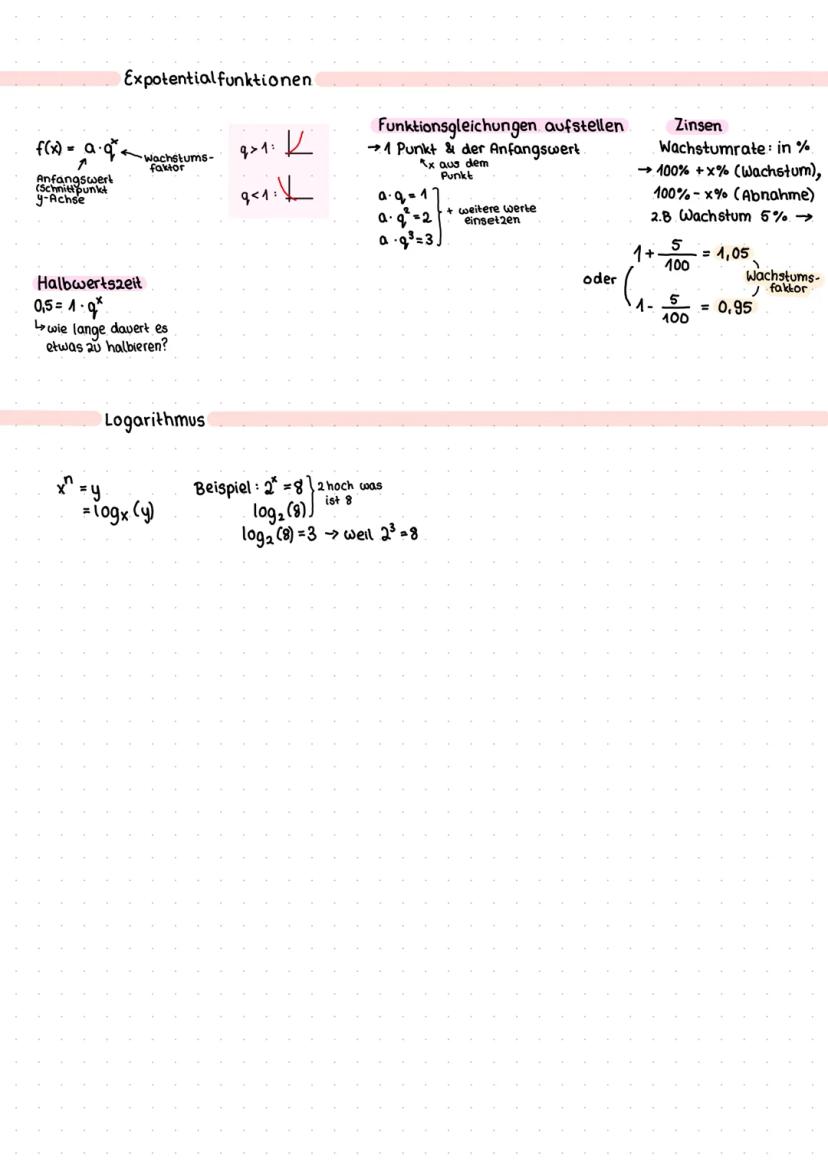 Expotentialfunktionen
f(x) = a·qˣ
Wachstums-
faktor
Anfangswert
(Schnittpunkt
y-Achse
q>1:
q<1:
Funktionsgleichungen aufstellen
→ 1 Punkt & der Anfangswert
↖x aus dem
Punkt
a·q = 1
a·q² = 2
a·q³ = 3
+ weitere Werte
einsetzen
Zinsen
Wachstumrate: in %
→ 100% + x% (Wachstum),
100% - x% (Abnahme)
z.B. Wachstum 5% →
1 + 5/100 = 1,05
oder
1 - 5/100 = 0,95
Wachstums-
faktor
Halbwertszeit
0,5 = 1·qˣ
↳ wie lange dauert es
etwas zu halbieren?
Logarithmus
xⁿ = y
= logₓ(y)
Beispiel: 2ˣ = 8
log₂(8)
2 hoch was
ist 8
log₂(8) = 3 → weil 2³ = 8